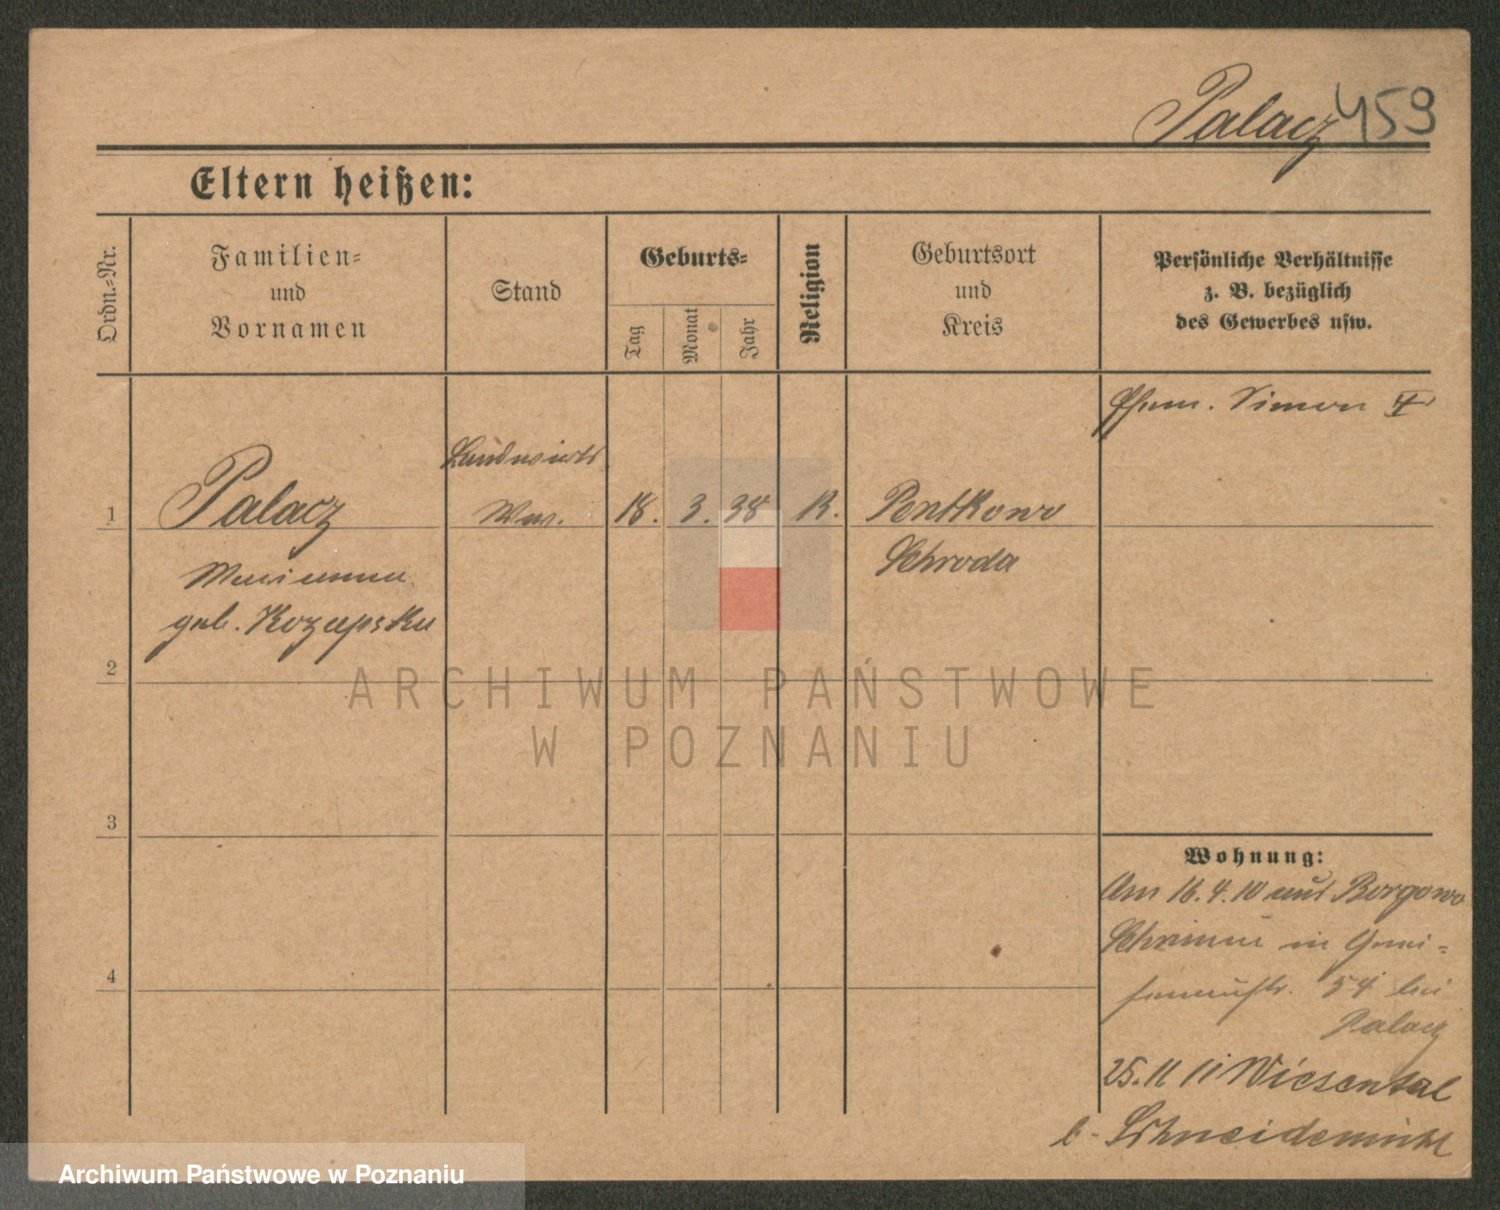 Palacz 459
Eltern heißen:
Ordn.-Nr.
Familien-
und
Vornamen
Stand
Geburts-
Tag
Monat
Jahr
Religion
Geburtsort
und
Kreis
Persönliche Verhältnisse
z. B. bezüglich
des Gewerbes usw.
Ehem. Simon
Landwirts
1 Palacz Ww. 18. 3. 38 R. Pentkowo
Marianna Schroda
geb.
2
ARCHIWUM PAŃSTWOWE
W POZNANIU
3
Wohnung:
Am 16.4.10 aus Borgowo
Schrimm in Gnei-
senaustr. 54 bei
4
Palacz
25.11 11 Wiesental
b. Schneidemühl
Archiwum Państwowe w Poznaniu